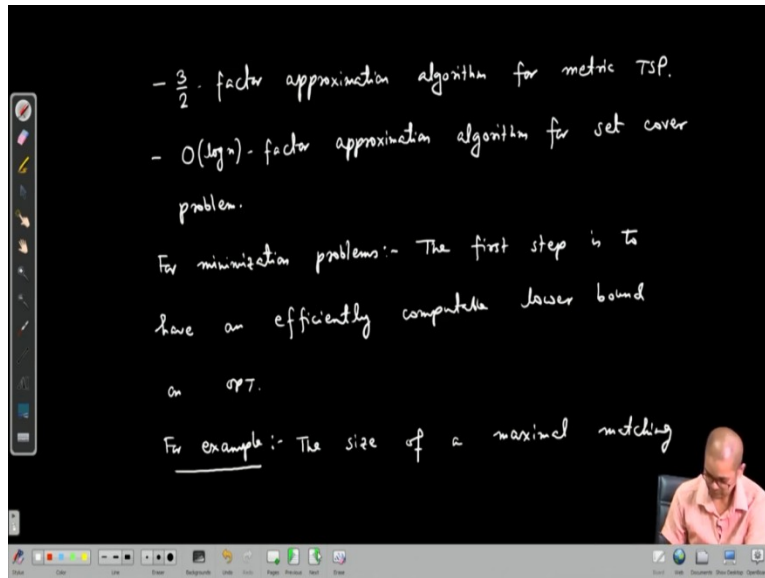 - 3/2 - factor approximation algorithm for metric TSP.
- O(log n) - factor approximation algorithm for set cover
problem.
For minimization problems:- The first step is to
have an efficiently computable lower bound
on OPT.
For example:- The size of a maximal matching